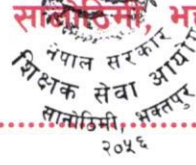 सानोठिमी, भ
नेपाल सरकार
शिक्षक सेवा आयोग
सानोठिमी, भक्तपुर
२०५६